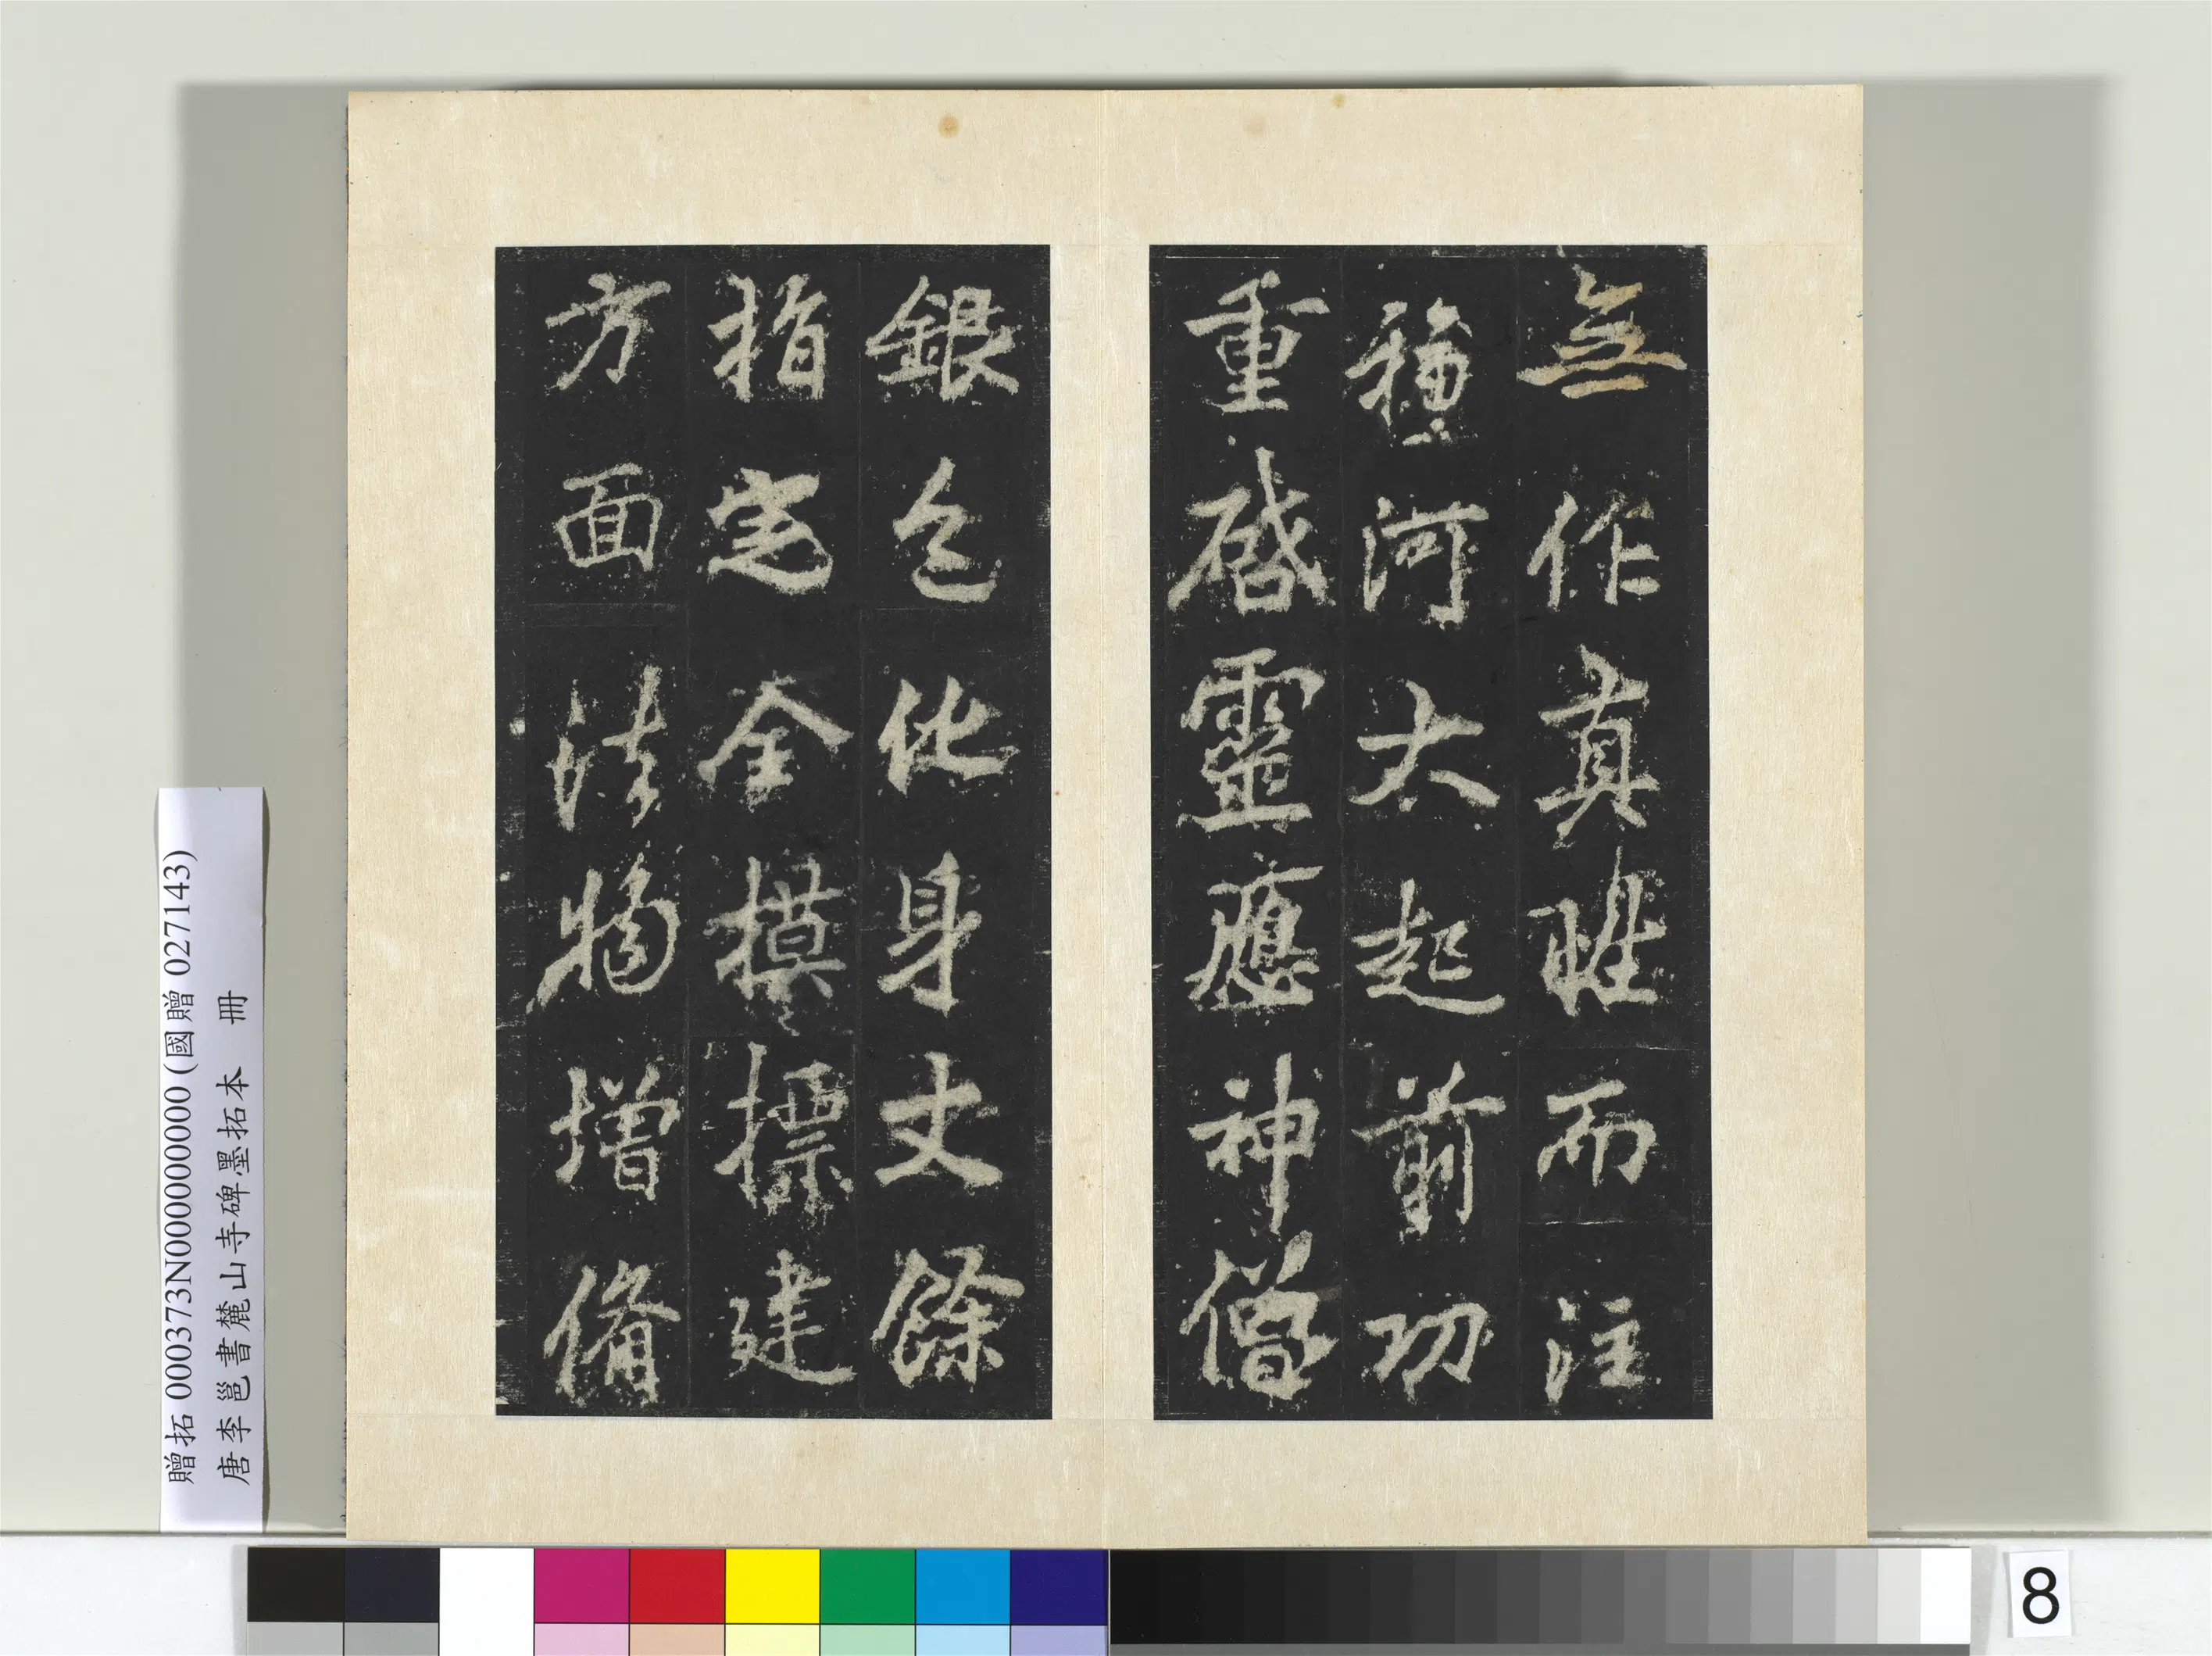 無作真性而注
福河大起前功
重啓靈應神僧
銀色化身丈餘
指定全摸摽建
方面法物增備
贈拓 000373N000000000 (國贈 027143)
唐李邕書麓山寺碑墨拓本 冊
8